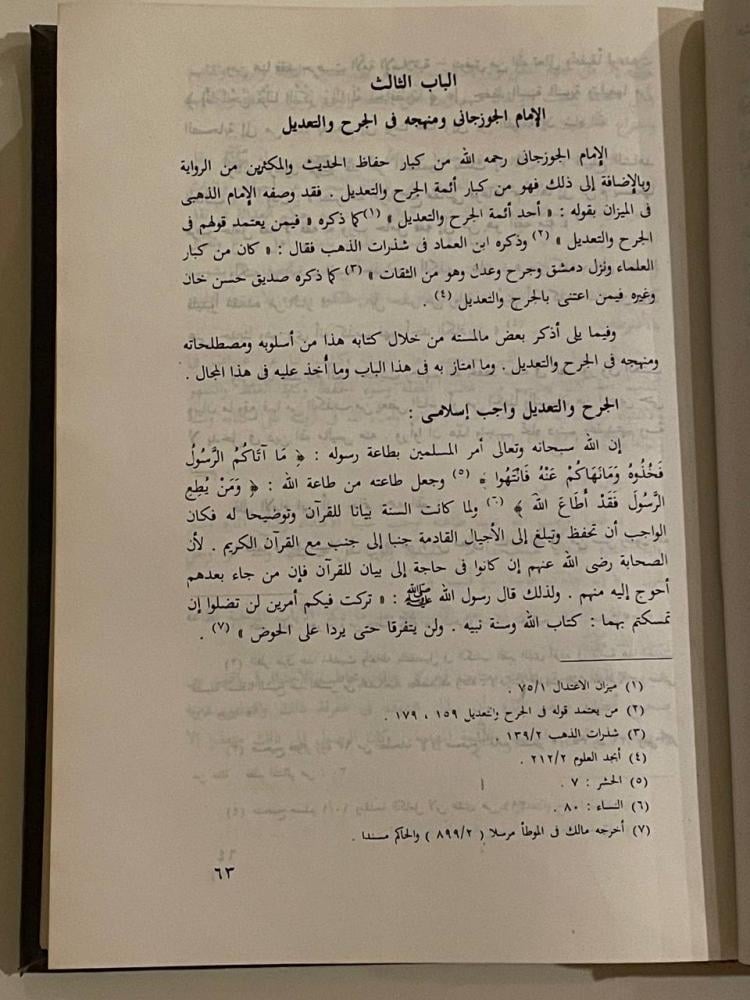 الباب الثالث
الإمام الجوزجانى ومنهجه فى الجرح والتعديل
الإمام الجوزجانى رحمه الله من كبار حفاظ الحديث والمكثرين من الرواية
وبالإضافة إلى ذلك فهو من كبار أئمة الجرح والتعديل . فقد وصفه الإمام الذهبى
فى الميزان بقوله : « أحد أئمة الجرح والتعديل » (١) كما ذكره « فيمن يعتمد قولهم فى
الجرح والتعديل » (٢) وذكره ابن العماد فى شذرات الذهب فقال : « كان من كبار
العلماء ونزل دمشق وجرح وعدل وهو من الثقات » (٣) كما ذكره صديق حسن خان
وغيره فيمن اعتنى بالجرح والتعديل (٤) .
وفيما يلى أذكر بعض مالمسته من خلال كتابه هذا من أسلوبه ومصطلحاته
ومنهجه فى الجرح والتعديل . وما امتاز به فى هذا الباب وما أُخذ عليه فى هذا المجال .
الجرح والتعديل واجب إسلامى :
إن الله سبحانه وتعالى أمر المسلمين بطاعة رسوله : ﴿ مَا آتَاكُمُ الرَّسُولُ
فَخُذُوهُ وَمَانَهَاكُمْ عَنْهُ فَانْتَهُوا ﴾ (٥) وجعل طاعته من طاعة الله : ﴿ وَمَنْ يُطِعِ
الرَّسُولَ فَقَدْ أَطَاعَ اللهَ ﴾ (٦) ولما كانت السنة بيانا للقرآن وتوضيحا له فكان
الواجب أن تحفظ وتبلغ إلى الأجيال القادمة جنبا إلى جنب مع القرآن الكريم . لأن
الصحابة رضى الله عنهم إن كانوا فى حاجة إلى بيان للقرآن فإن من جاء بعدهم
أحوج إليه منهم . ولذلك قال رسول الله ﷺ : « تركت فيكم أمرين لن تضلوا إن
تمسكتم بهما : كتاب الله وسنة نبيه . ولن يتفرقا حتى يردا على الحوض » (٧) .
(١) ميزان الاعتدال ٧٥/١ .
(٢) من يعتمد قوله فى الجرح والتعديل ١٥٩ ، ١٧٩ .
(٣) شذرات الذهب ١٣٩/٢ .
(٤) أبجد العلوم ٢١٢/٢ .
(٥) الحشر : ٧ .
(٦) النساء : ٨٠ .
(٧) أخرجه مالك فى الموطأ مرسلا ( ٨٩٩/٢ ) والحاكم مسندا .
٦٣